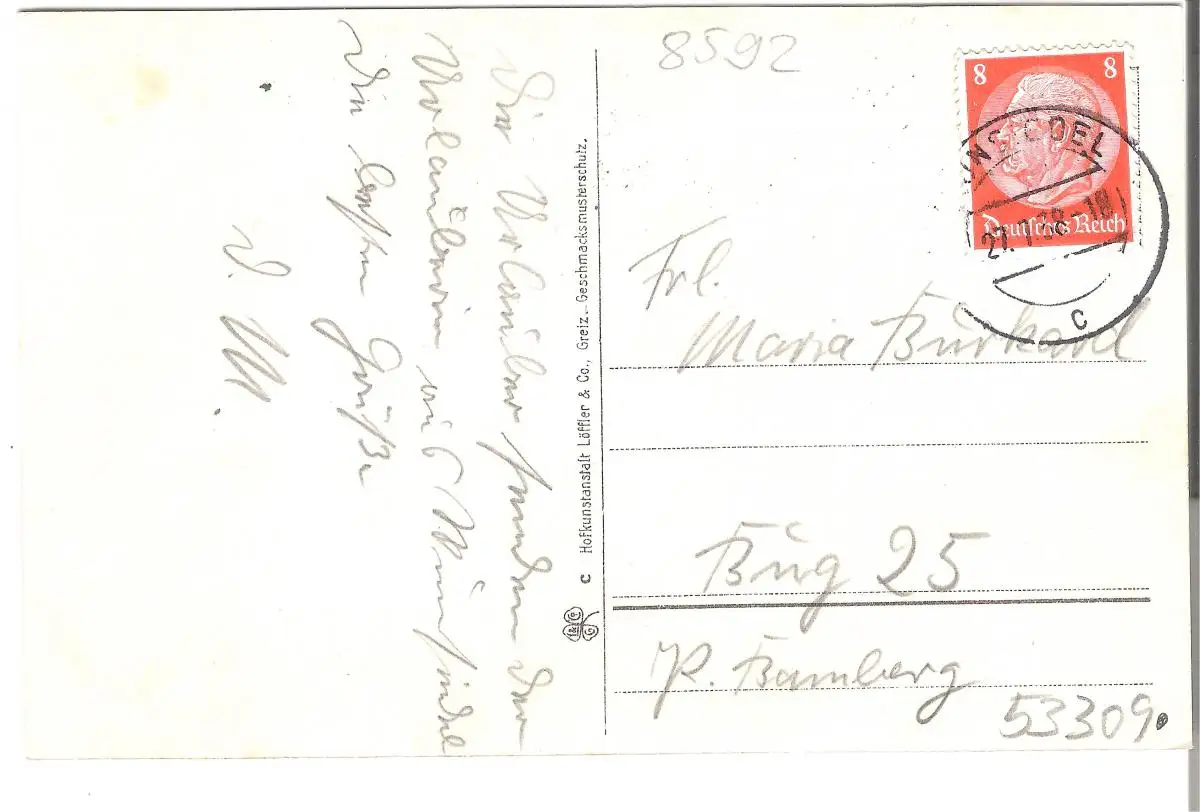 Die Urlauber senden der
Urlauberin aus Wunsiedel
die besten Grüße
D. M.
C Hofkunstanstalt Löffler & Co., Greiz. – Geschmacksmusterschutz.
8592
8 8
Deutsches Reich
UNSIEDEL
27.7.38-18
c
Frl.
Maria Burkard
Bug 25
P. Bamberg
53309